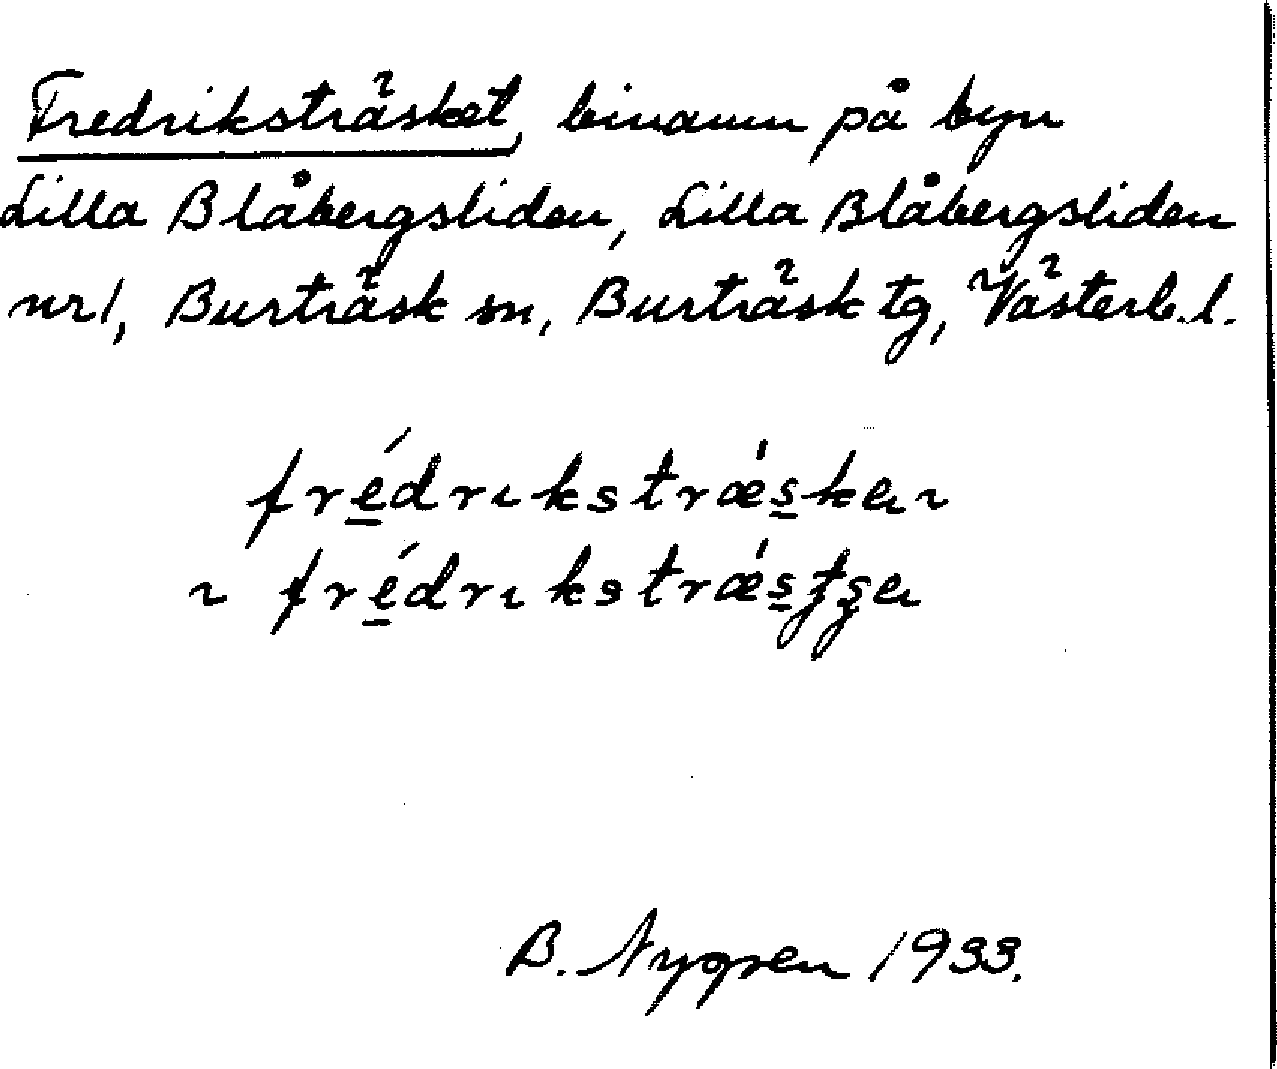 Fredriksträsket, binamn på byn
Lilla Blåbergsliden, Lilla Blåbergsliden
nr 1, Burträsk sn, Burträsk tg, Västerb. l.
fré̲drıkstræ's̲ke
ı fré̲drıkstræ's̲
B. Nygren 1933.